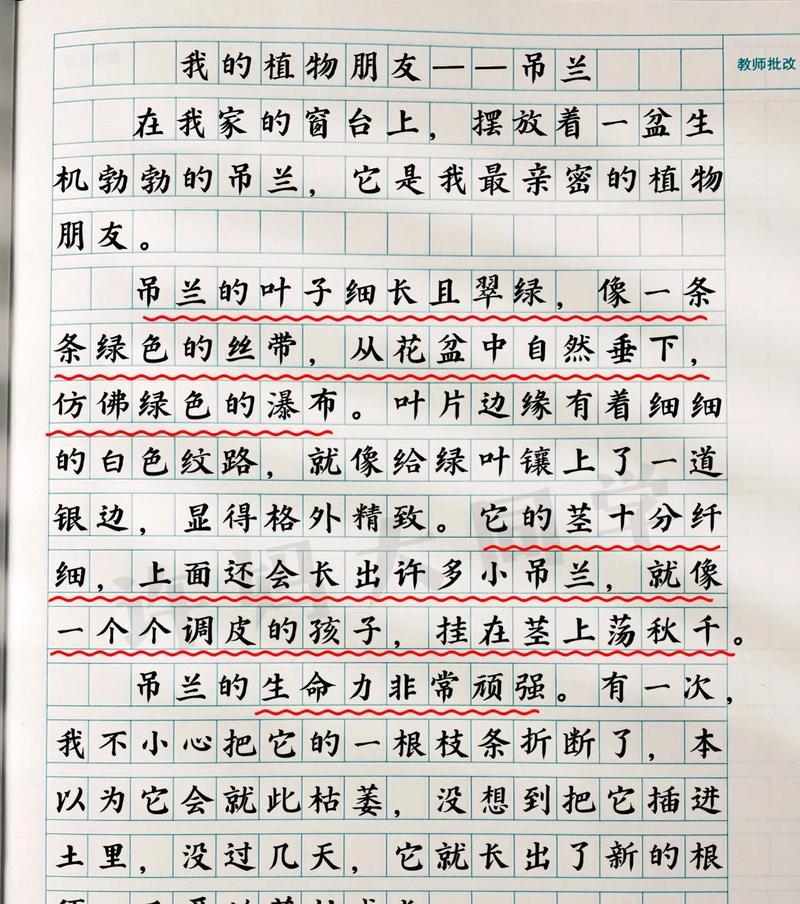 我的植物朋友——吊兰
教师批改
在我家的窗台上，摆放着一盆生
机勃勃的吊兰，它是我最亲密的植物
朋友。
吊兰的叶子细长且翠绿，像一条
条绿色的丝带，从花盆中自然垂下，
仿佛绿色的瀑布。叶片边缘有着细细
的白色纹路，就像给绿叶镶上了一道
银边，显得格外精致。它的茎十分纤
细，上面还会长出许多小吊兰，就像
一个个调皮的孩子，挂在茎上荡秋千。
吊兰的生命力非常顽强。有一次，
我不小心把它的一根枝条折断了，本
以为它会就此枯萎，没想到把它插进
土里，没过几天，它就长出了新的根